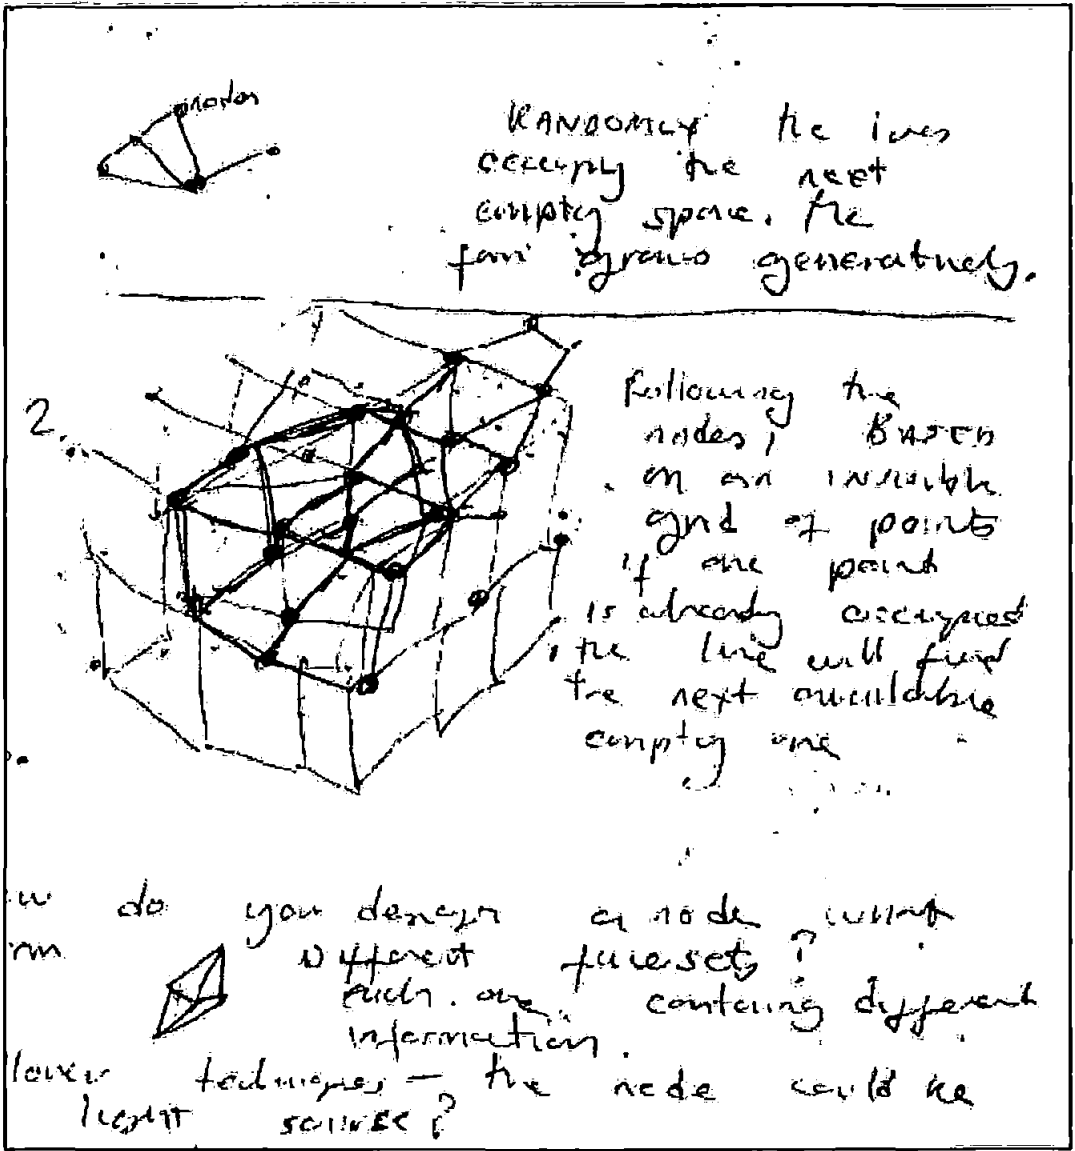 nodes
RANDOMLY the lines
occupy the next
empty space. The
form grows generatively.
2.
Following the
nodes, BASED
on an invisible
grid of points
if one point
is already occupied
the line will find
the next available
empty one
do you design a node what
Different facesets?
each one containg different
information.
techniques — the node could be
light source?